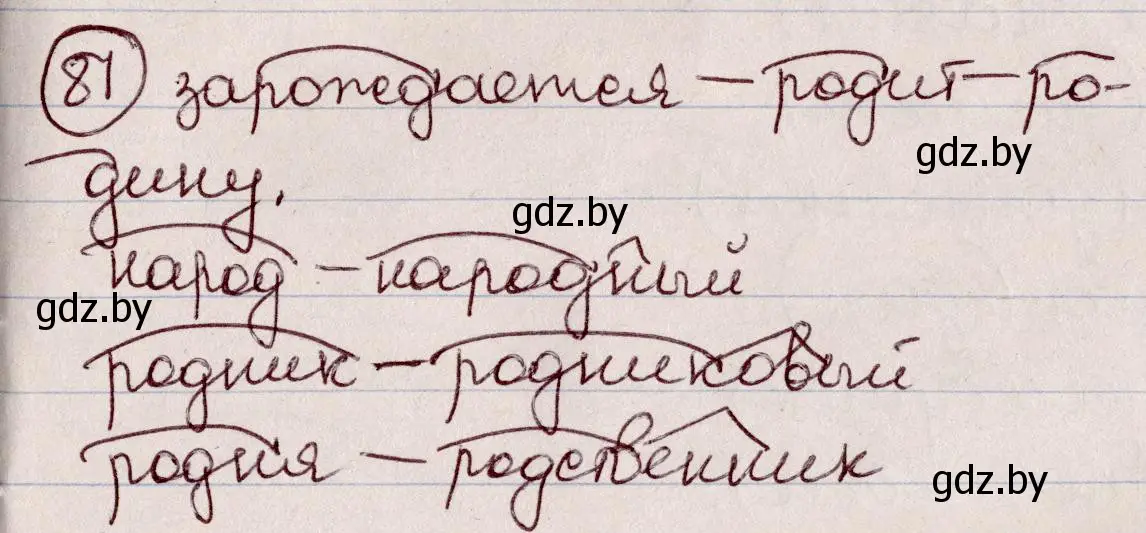 81 зарождается – родит – ро-
gdz.by
дину.
gdz.by
народ – народный
gdz.by
родник – родниковый
родня – родственник
gdz.by